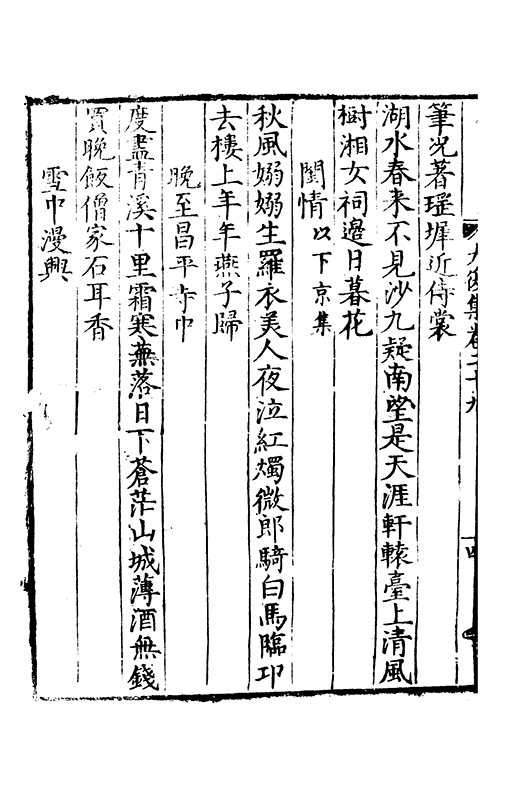 大復集卷二十九
筆况著瑶墀近侍裳
湖水春来不見沙九疑南望是天涯軒轅臺上清風
樹湘女祠邉日暮花
閨情以下京集
秋風嫋嫋生羅衣美人夜泣紅燭微郎騎白馬臨卭
去樓上年年燕子歸
晚至昌平寺中
度盡青溪十里霜寒蕪落日下蒼茫山城薄酒無錢
買晚飯僧家石耳香
雪中漫興